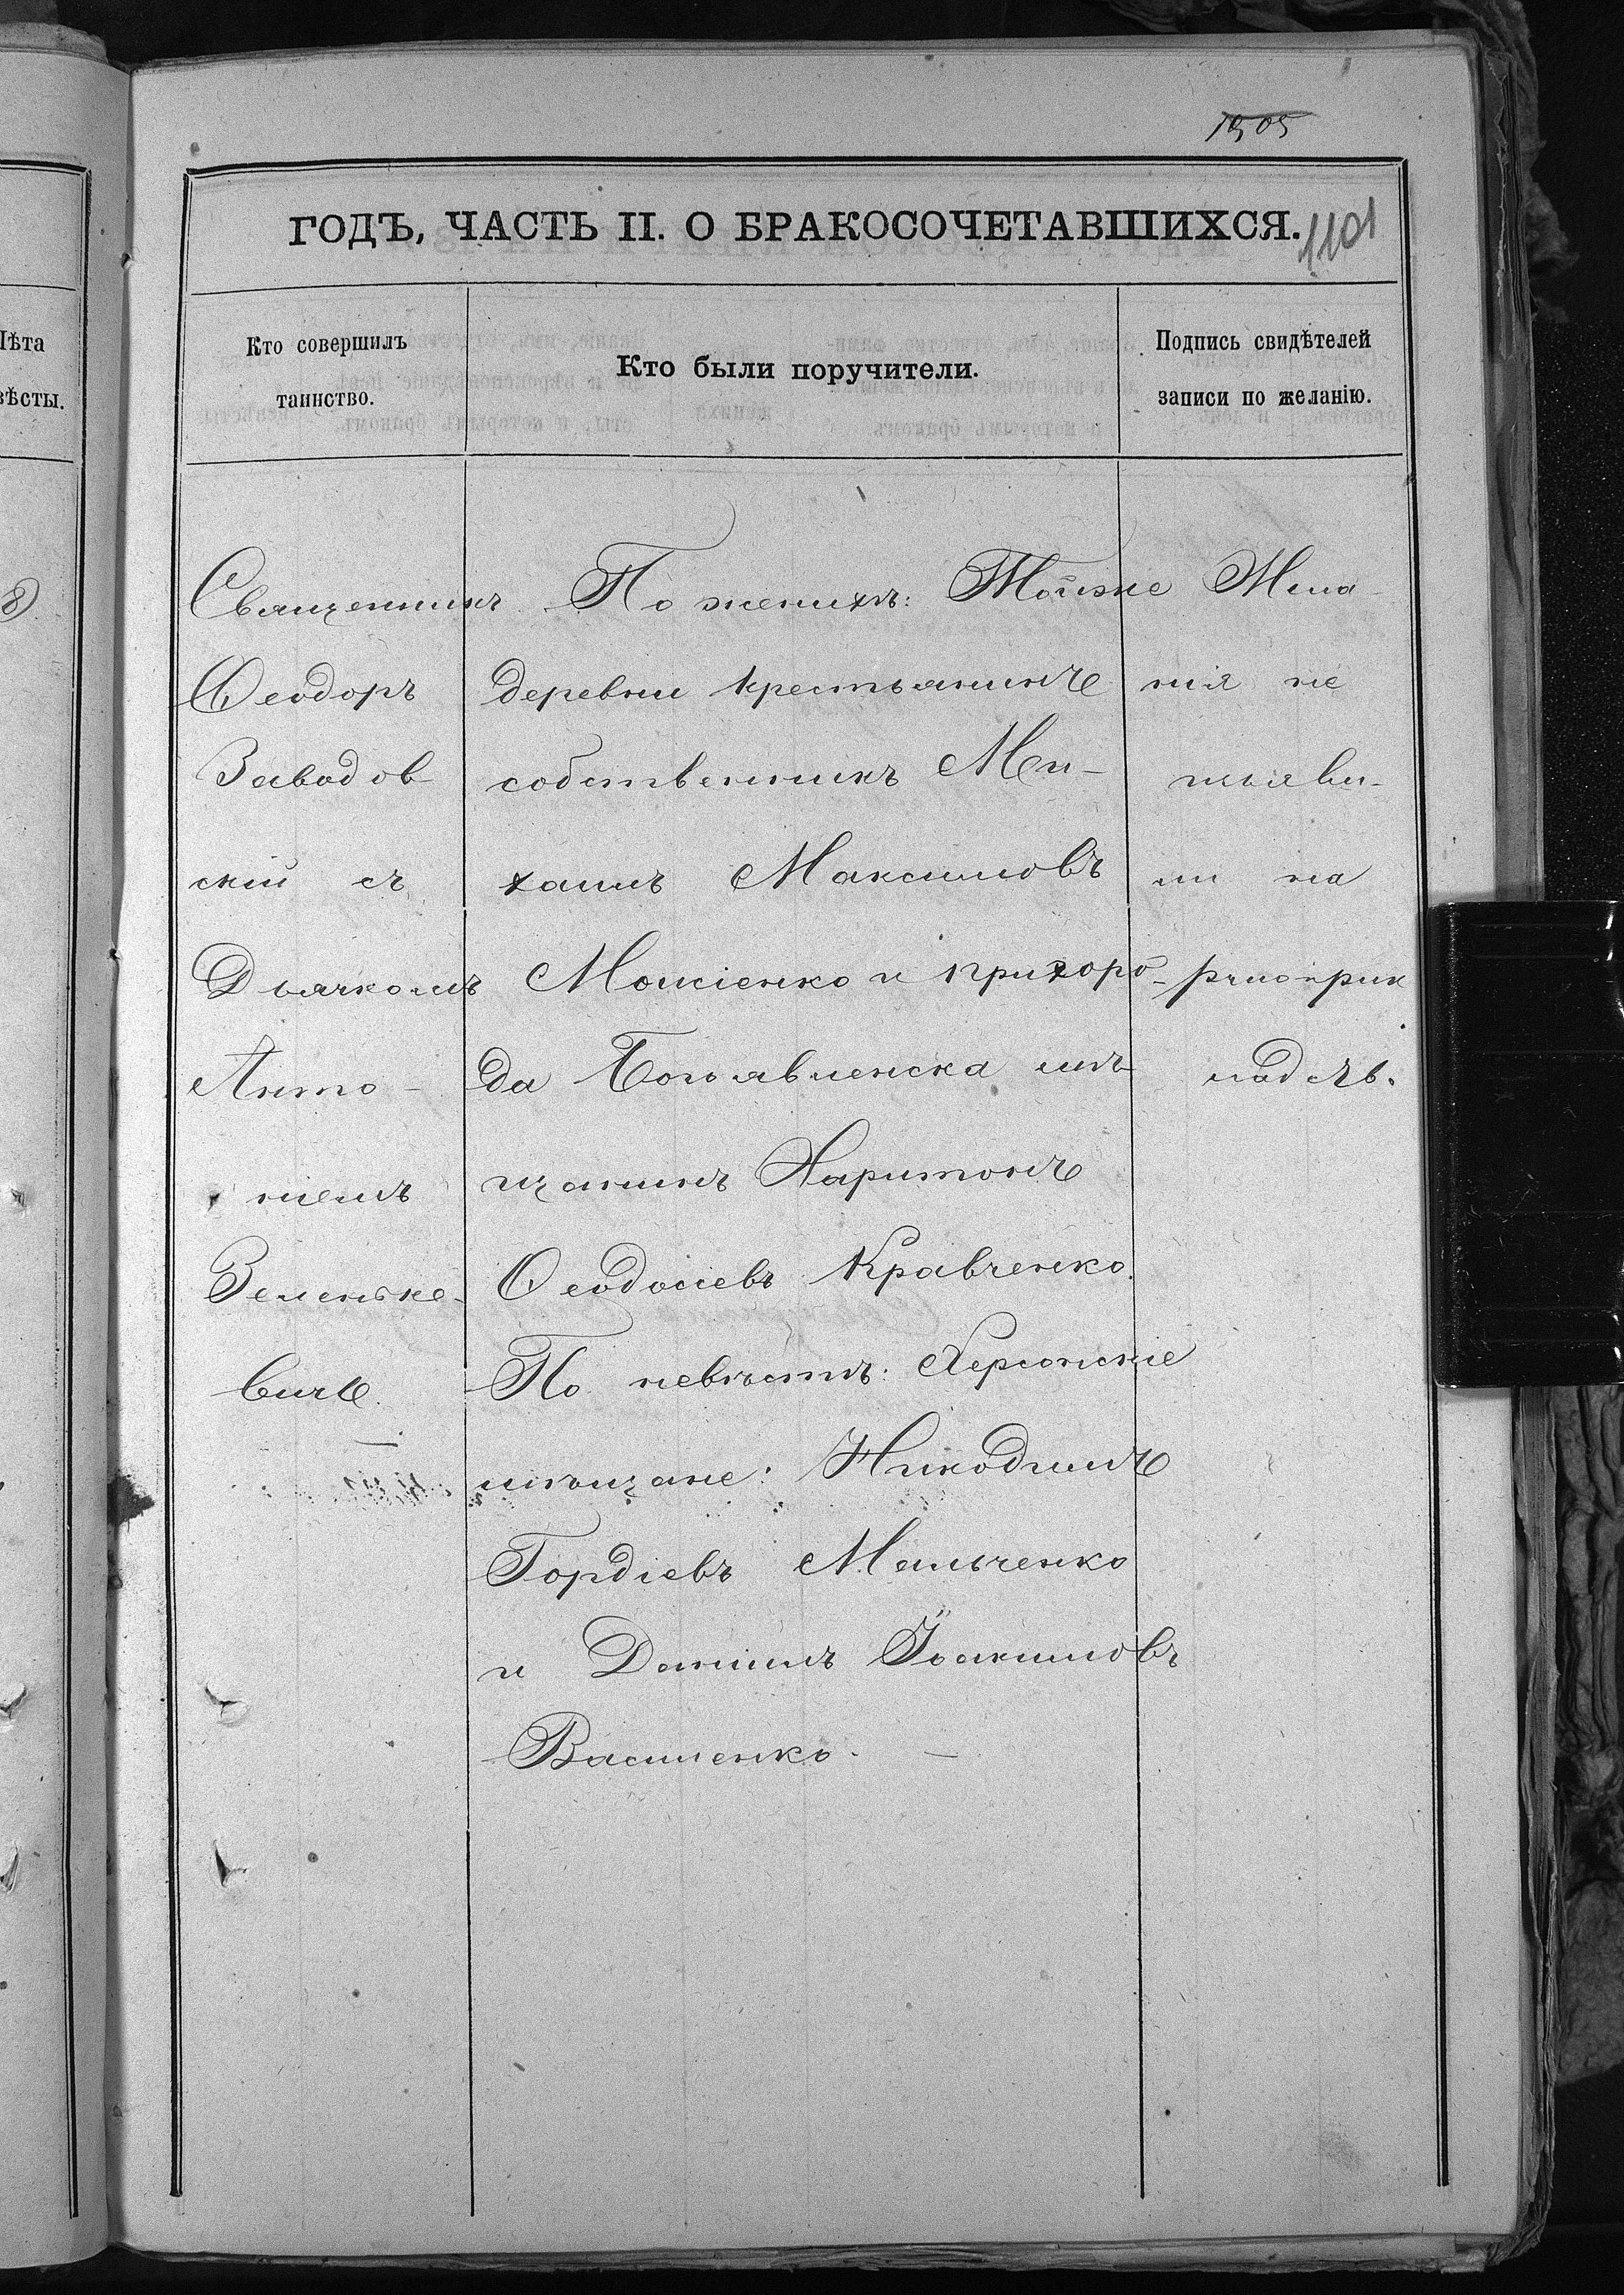 1505
ГОДЪ, ЧАСТЬ II. О БРАКОСОЧЕТАВШИХСЯ.
1101
Лѣта
вѣсты.
Кто совершилъ
таинство.
Кто были поручители.
Подпись свидѣтелей
записи по желанію.
Священникъ
Ѳеодоръ
Заводов
скій съ
Дьячкомъ
Анто-
ніемъ
Зеленке-
вичъ.
По женихѣ: Тойже
деревни крестьянинъ
собственникъ Ми-
хаилъ Максимовъ
Моисіенко и пригоро-
да Богоявленска мѣ
щанинъ Харитонъ
Ѳеодосіевъ Кравченко.
По невѣстѣ: Херсонскіе
мѣщане: Никодимъ
Гордіевъ Мельченко
и Даніилъ Іоакимовъ
Василенко. —
Жела-
нія не
изъяви-
ли на